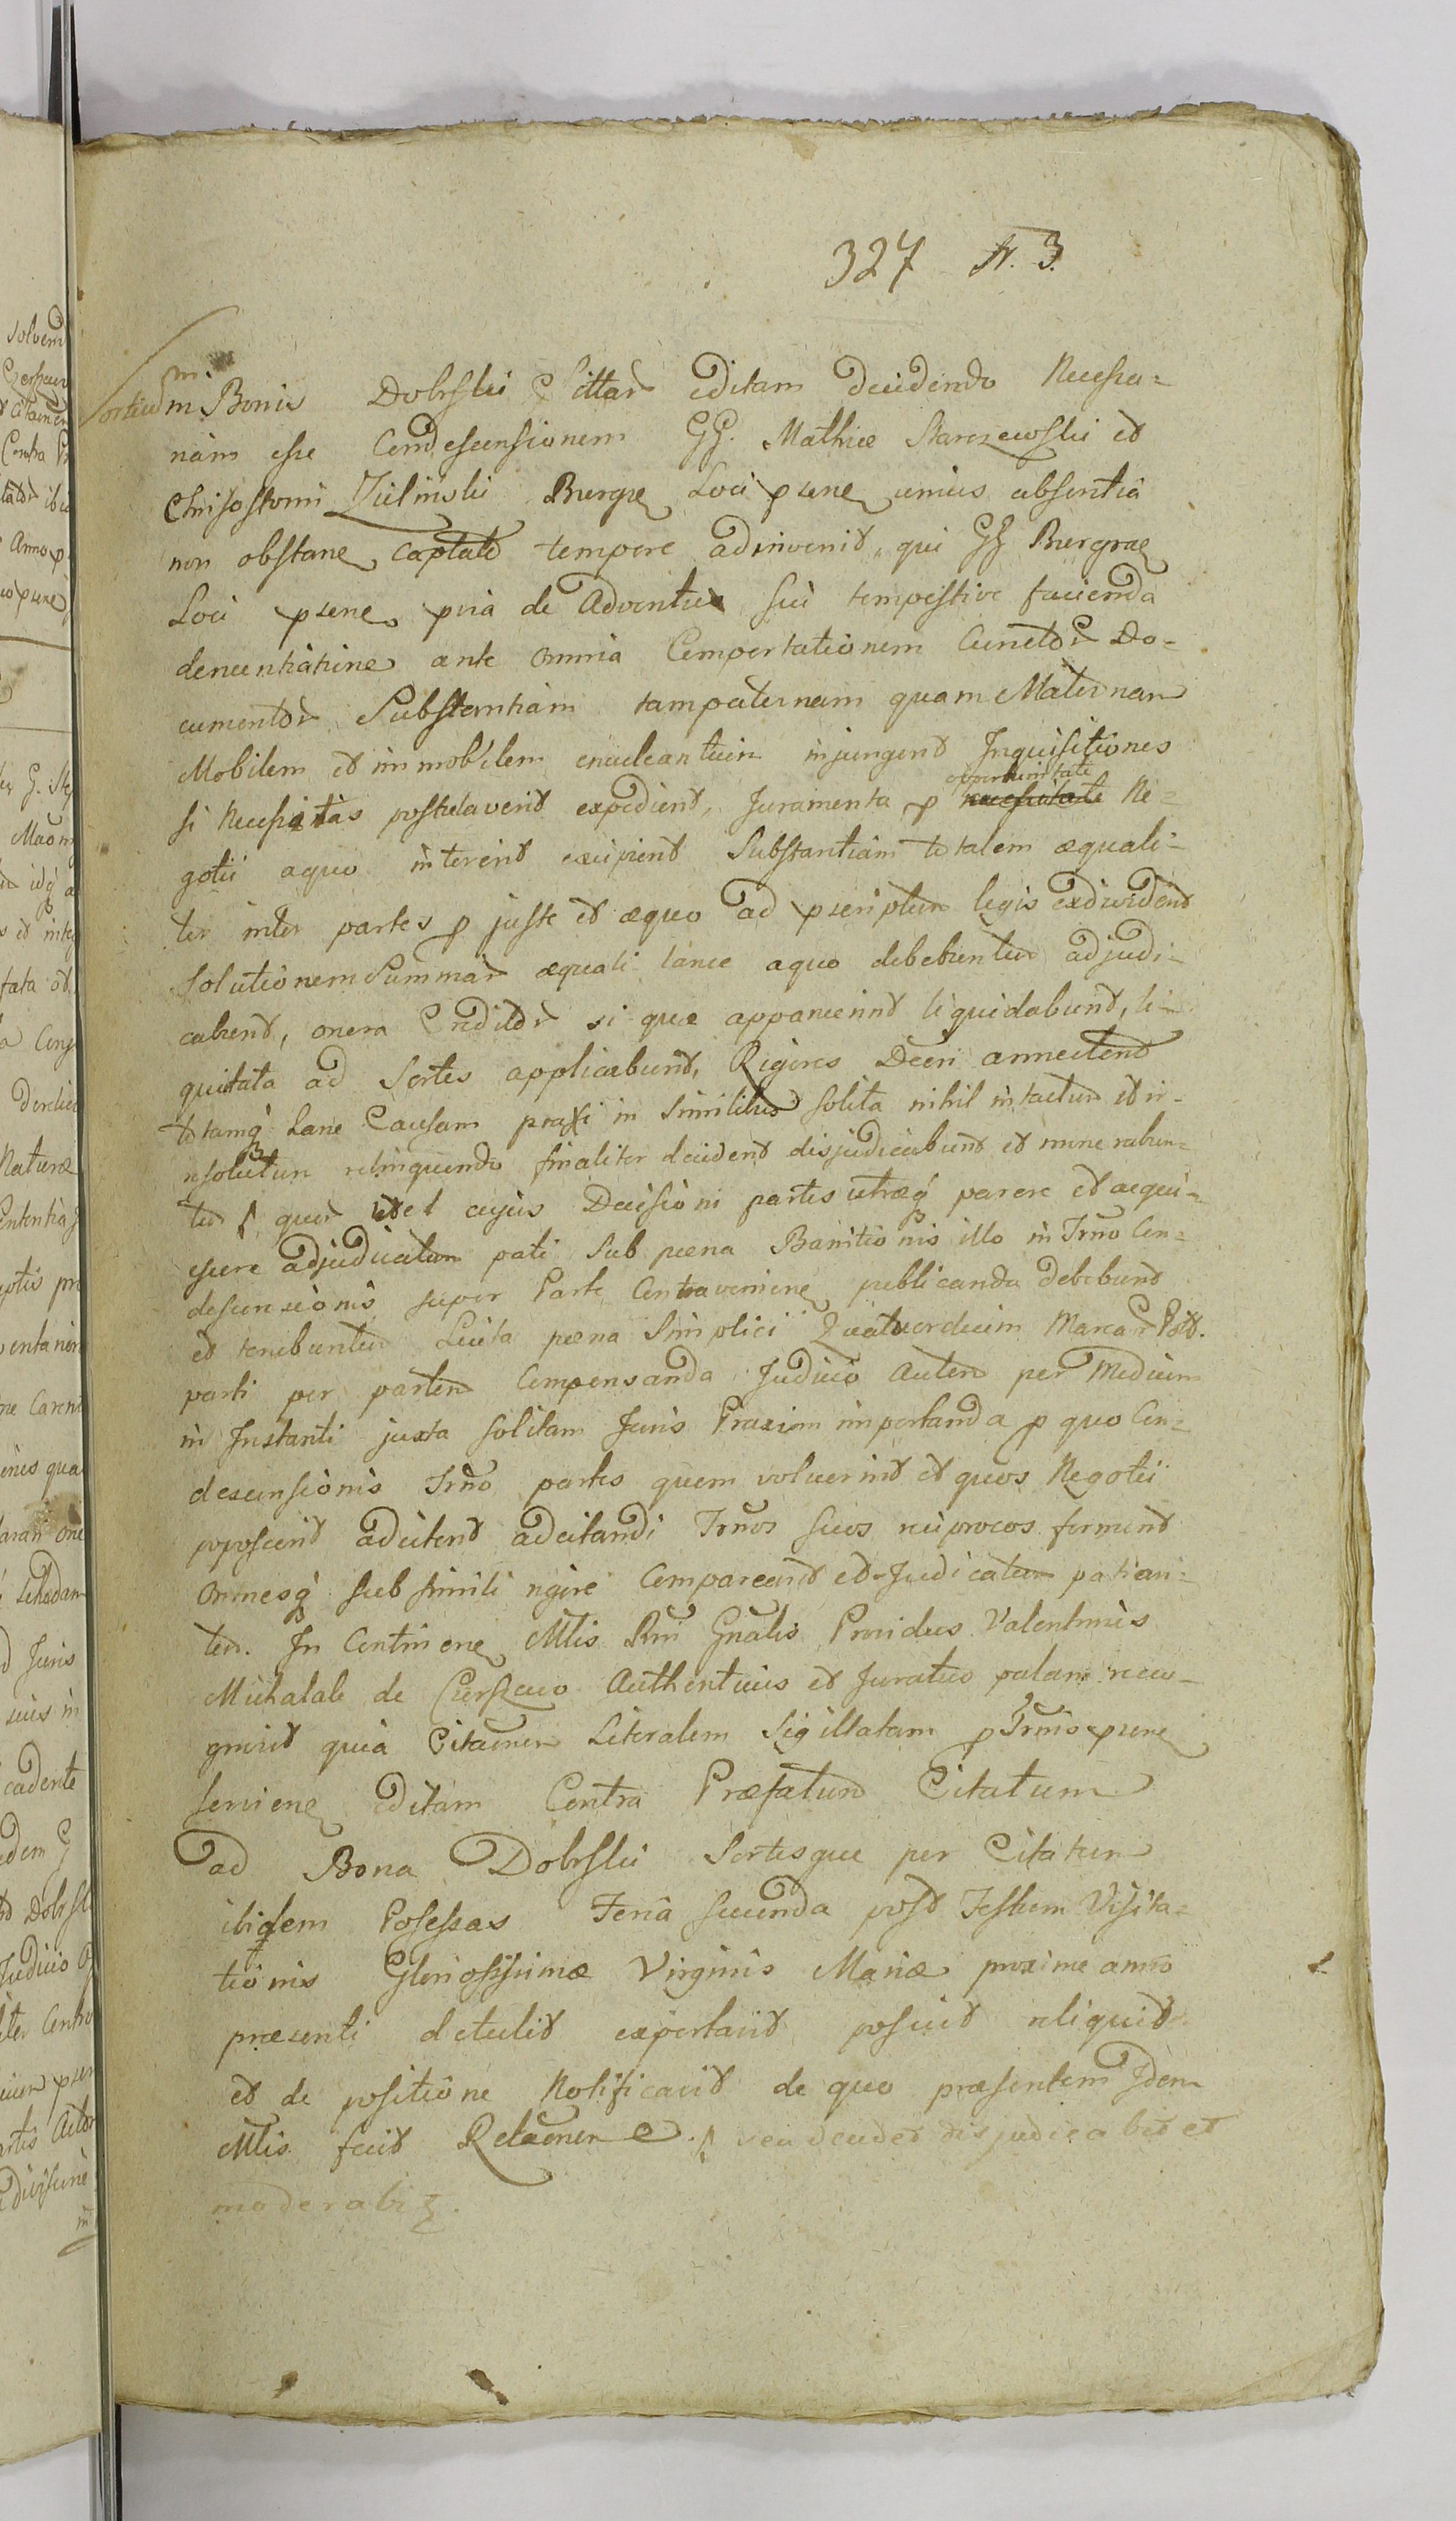 327 N. 3.
Sortium in Bonis Dobrski Sittar editam decidendo Necessa-
riam esse Condescensionem GG. Mathiæ Starczewski et
Chrisostomi Zielinski Burgræ Loci præne unius absentia
non obstane captato tempore adinvenit, qui GG Burgræ
Loci præne pvia de Adventu sui tempestive facienda
denuntiatione ante omnia Comportationem Cunctor Do-
cumentor Substantiam tam paternam quam Maternam
Mobilem et immobilem enucleantium injungent Inquisitiones
opportunitate
si Necessitas postulaverit expedient, Juramenta p necessitate Ne-
gotii a quo interent excipient Substantiam totalem æquali-
ter inter partes p juste et æquo ad præscriptum legis exdivident
Solutionem Summar æquali lance a quo debebuntur adjudi-
cabunt, onera Creditor si quæ apparuerint liquidabunt, li-
quitata ad Sortes applicabunt, Rigores Decri annectent
totamq hanc Causam praxi in Similibus solita nihil intactum et ir-
resolutum relinquendo finaliter decident disjudicabunt et mune rabun-
tur quor vel cujus Decisioni partes utræq parere et acqui-
escere adjudicatum pati Sub pœna Banitionis illo in Trno Con-
descensionis super Parte Contraveniene publicanda debebunt
et tenebuntur Lucita pœna Simplici Quatuordecim Marcar Polt.
parti per partem Compensanda Judicio Autem per Medium
in Instanti juxta solitam Juris Praxim importanda p quo Con-
descensionis Trno partes quem voluerint et quos Negotii
poposcerit adcitent adcitandi Trnos suos reciprocos forment
Omnesq sub simili rigore Compareant et Judicatum patian-
tur. In Continene Mtis Rni Gnalis Providus Valentinus
Michalak de Czerszewo Authenticus et Juratus palam reco-
gnovit quia Citaonem Literalem Sigillatam p Trnis præne
serviene editam Contra Præfatum Citatum
ad Bona Dobrski Sortesque per Citatum
ibidem Possessas Feria secunda post Festum Visita-
tionis Gloriosissimæ Virginis Mariæ proxime anno
præsenti detulit exportavit posuit reliquit
et de positione Notificavit de quo præsentem Idem
Mtis fecit Relaonem. seu decidet disjudicabit et
moderabit.